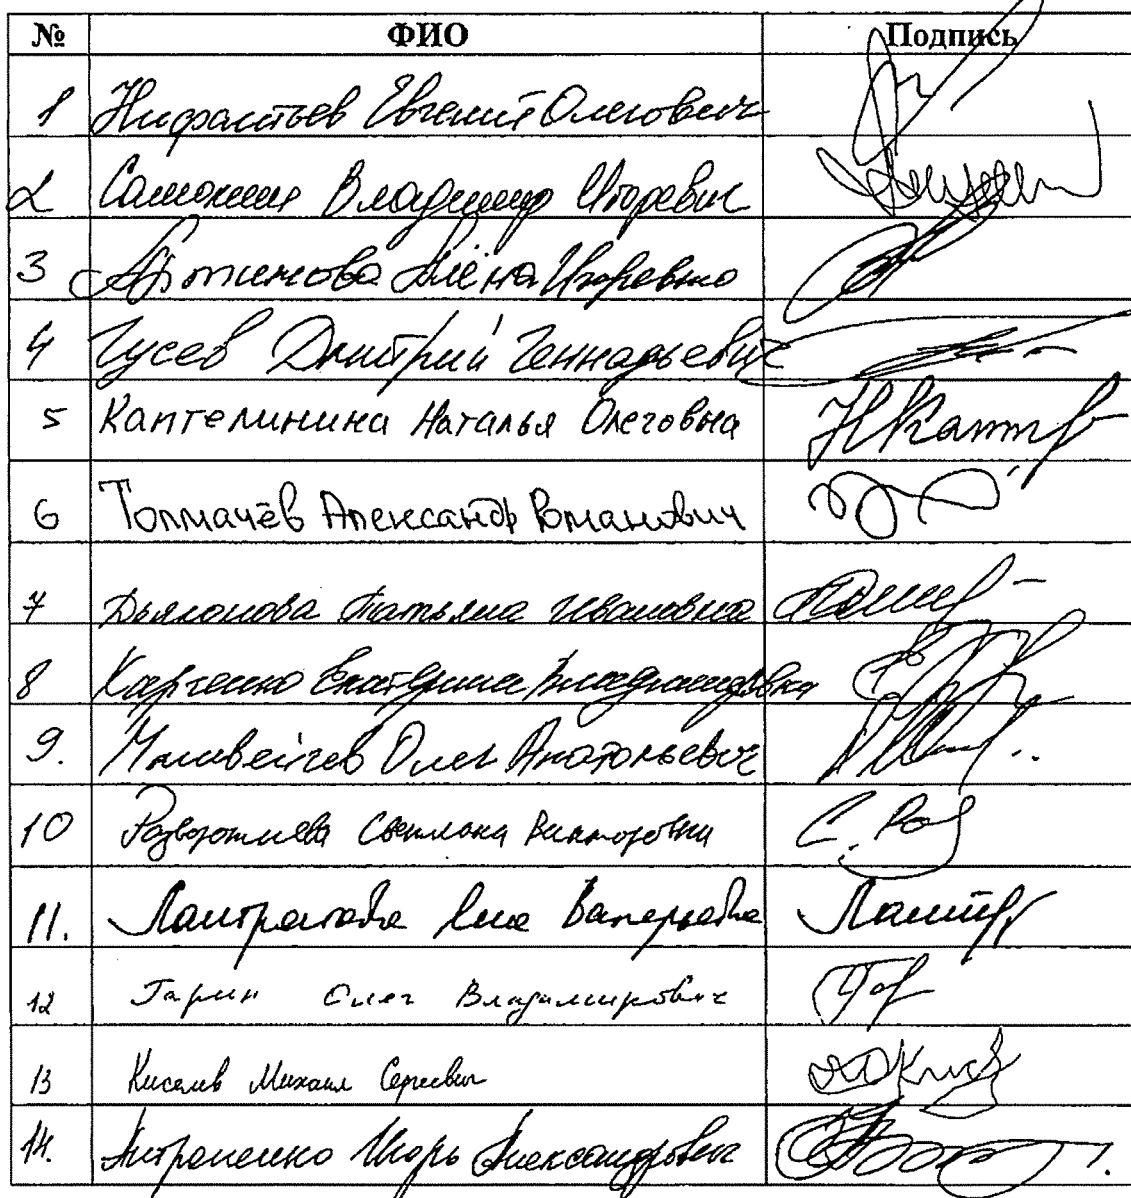 № ФИО Подпись
1 Нифантьев Евгений Олегович
2 Самокиш Владимир Игоревич
3 Аршинова Алёна Игоревна
4 Гусев Дмитрий Геннадьевич
5 Каптелинина Наталья Олеговна
6 Толмачёв Александр Романович
7 Дьяконова Татьяна Ивановна
8 Харченко Екатерина Владимировна
9. Матвейчев Олег Анатольевич
10 Разворотнева Светлана Викторовна
11. Лантратова Яна Валерьевна
12 Гарин Олег Владимирович
13 Киселев Михаил Сергеевич
14. Антропенко Игорь Александрович